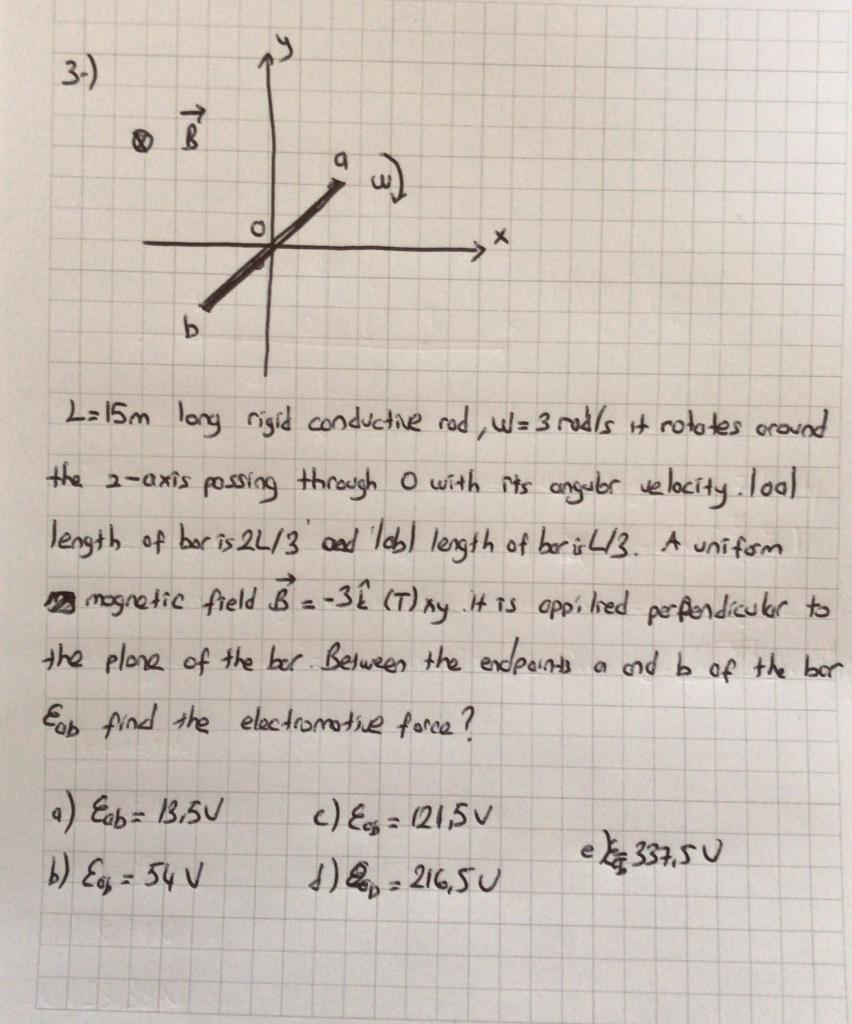 3-)
y
B
a
w
O
x
b
L=15m long rigid conductive rod, w=3 rad/s it rotates around
the z-axis passing through O with its angular velocity. loal
length of bar is 2L/3 and lobl length of bar is L/3. A uniform
magnetic field B = -3k̂ (T) xy. It is applired perpendicular to
the plane of the bar. Between the endpoints a and b of the bar
Ɛab find the electromotive force?
a) Ɛab = 13,5V
c) Ɛab = 121,5V
e) Ɛab = 337,5V
b) Ɛab = 54 V
d) Ɛab = 216,5V